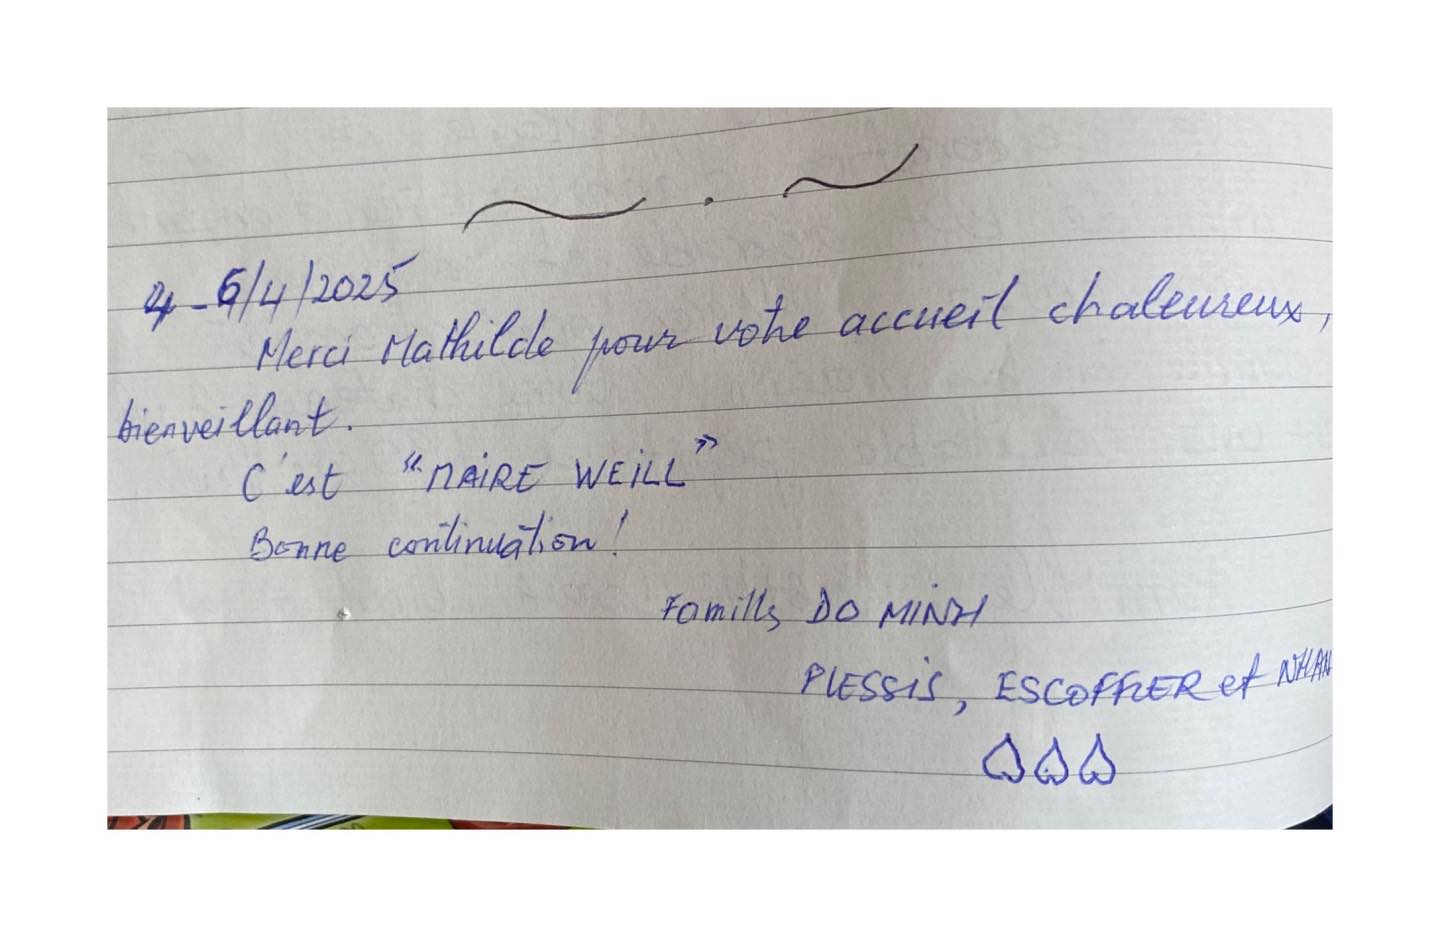 4-6/4/2025
Merci Mathilde pour votre accueil chaleureux,
bienveillant.
C'est "MAIRE WEILL"
Bonne continuation!
Familles DO MINH
PLESSIS, ESCOFFIER et NHAN